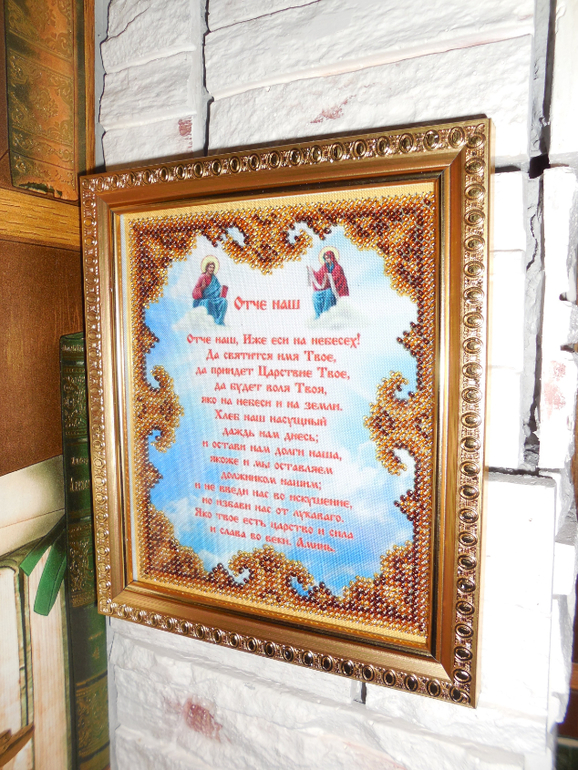 Отче наш
Отче наш, Иже еси на небесех!
Да святится имя Твое,
да приидет Царствие Твое,
да будет воля Твоя,
яко на небеси и на земли.
Хлеб наш насущный
даждь нам днесь;
и остави нам долги наша,
якоже и мы оставляем
должником нашим;
и не введи нас во искушение,
но избави нас от лукаваго.
Яко твое есть царство и сила
и слава во веки. Аминь.